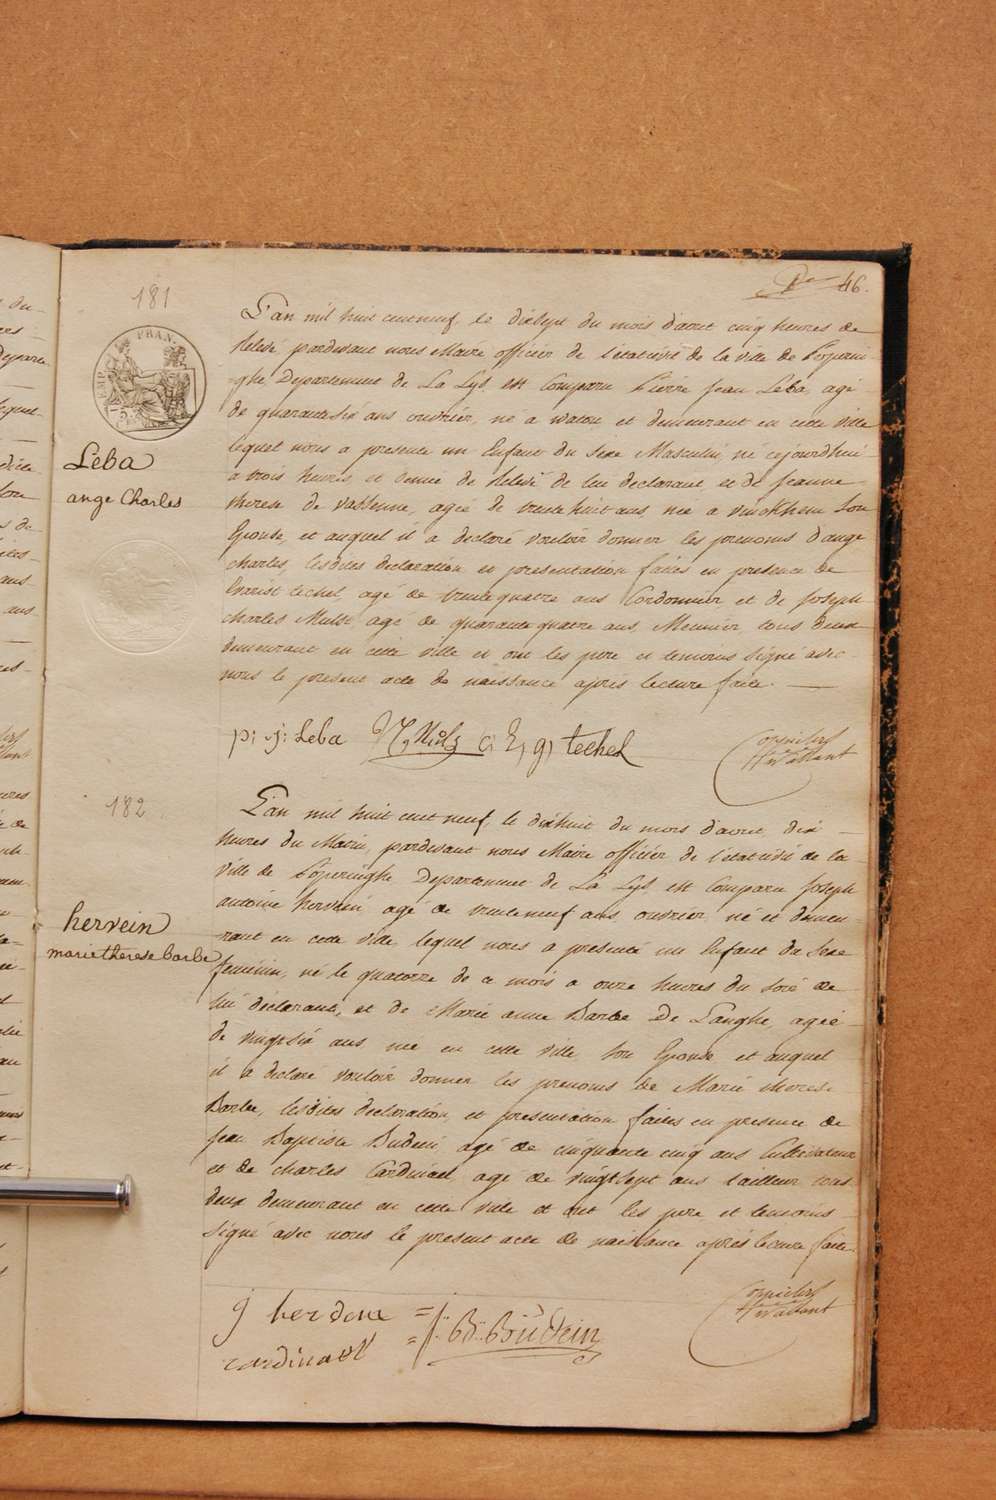 46.
181
TIMP. FRAN.
Leba
ange Charles
L'an mil huit cent neuf, le dixsept du mois d'aout cinq heures de
Relevé pardevant nous Maire officier de l'etatcivil de la ville de Poperin-
ghe, Departement de La Lys est Comparu Pierre Jean Leba, agé
de quarantesix ans ouvrier, né a watou et demeurant en cette ville
lequel nous a presenté un Enfant du Sexe Masculin né cejourdhui
a trois heures et demie de Relevé de lui declarant et de jeanne
therese de vassenne, agée de trentehuit ans née a vinckhem son
Epouse, et auquel il a declaré vouloir donner les prenoms d'ange
charles, lesdites declaration et presentation faites en presence de
techel, agé de trentequatre ans Cordonnier et de Joseph
charles Mulle, agé de quarante quatre ans, Meunier tous deux
demeurant en cette ville et ont les pere et temoins signé avec
nous le present acte de naissance après lecture faite.
p: j: Leba c, E, g, techel
182
hervein
marie therese barbe
L'an mil huit cent neuf, le dixhuit du mois d'aout, dix
heures du Matin, pardevant nous Maire officier de l'etatcivil de la
ville de Poperinghe Departement de La Lys est Comparu Joseph
antoine hervein agé de trenteneuf ans ouvrier, né et demeu-
rant en cette ville, lequel nous a presenté un Enfant du Sexe
feminin, né le quatorze de ce mois a onze heures du soir de
lui declarant, et de Marie anne Barbe De Langhe, agée
de vingtsix ans née en cette ville son Epouse et auquel
il a declaré vouloir donner les prenoms de Marie therese
Barbe, lesdites declaration, et presentation faites en presence de
jean Baptiste Budein, agé de cinquante cinq ans Cultivateur
et de charles Cardinael, agé de vingtsept ans tailleur tous
deux demeurant en cette ville et ont les pere et temoins
signé avec nous le present acte de naissance après lecture faite.
cardinaël
j: B: Büdein